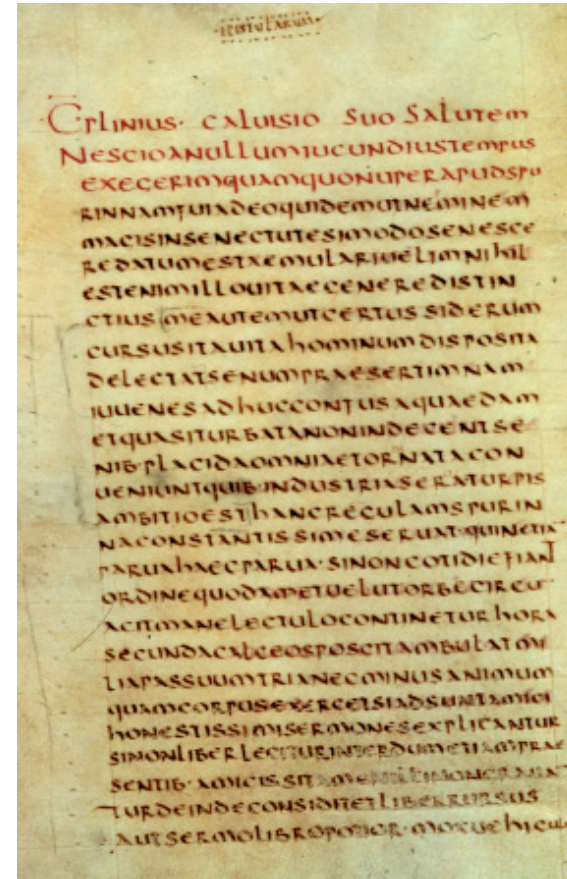 ·EPISTULARUM·
·C̅·PLINIUS· CALUISIO SUO SALUTEM
NESCIOANULLUMIUCUNDIUSTEMPUS
EXEGERIMQUAMQUONUPERAPUDSPU
RINNAMFUIADEOQUIDEMUTNEMINEM
MAGISINSENECTUTESIMODOSENESCE
REDATUMESTAEMULARIUELIMNIHIL
ESTENIMILLOUITAEGENEREDISTIN
CTIUS MEAUTEMUTCERTUS SIDERUM
CURSUSITAUITAHOMINUMDISPOSITA
DELECTATSENUMPRAESERTIMNAM
IUUENESADHUCCONFUSAQUAEDAM
ETQUASITURBATANONINDECENTSE
NIB·PLACIDAOMNIAETORNATACON
UENIUNTQUIB·INDUSTRIASERATURPIS
AMBITIOESTHANCREGULAMSPURIN
NACONSTANTISSIMESERUAT·QUINETIA
PARUAHAECPARUA·SINONCOTIDIEFIANT
ORDINEQUODAMETUELUTORBECIRCU
AGITMANELECTULOCONTINETURHORA
SECUNDACALCEOSPOSCITAMBULATMI
LIAPASSUUMTRIANECMINUSANIMUM
QUAMCORPUSEXERCETSIADSUNTAMICI
HONESTISSIMISERMONESEXPLICANTUR
SINONLIBERLEGITURINTERDUMETIAMPRAE
SENTIB·AMICISSITAMENILLINONGRAUAN
TURDEINDECONSIDITETLIBERRURSUS
AUTSERMOLIBROPOTIOR·MOXUEHICUL